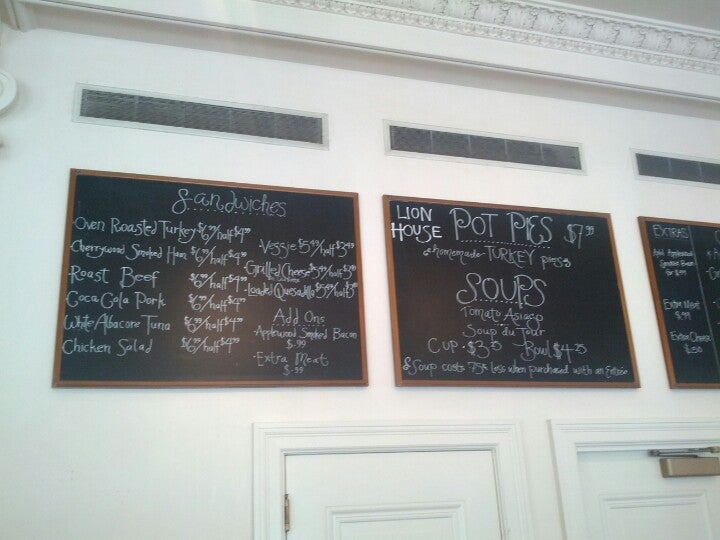 Sandwiches
Oven Roasted Turkey $6.99/half $4.99
Cherrywood Smoked Ham $6.99/half $4.99
Roast Beef $6.99/half $4.99
Coca Cola Pork $6.99/half $4.99
White Albacore Tuna $6.99/half $4.99
Chicken Salad $6.99/half $4.99
Veggie $5.49/half $3.99
Grilled Cheese
Loaded Quesadilla
Add Ons
Applewood Smoked Bacon
$.99
Extra Meat
$.99
LION HOUSE
POT PIES $7.99
homemade TURKEY pies
SOUPS
Tomato Asiago
Soup du Jour
Cup $3.25 Bowl $4.25
Soup costs 75¢ less when purchased with an Entrée
EXTRAS
Add Applewood
Smoked Bacon
Extra Meat
$.99
Extra Cheese